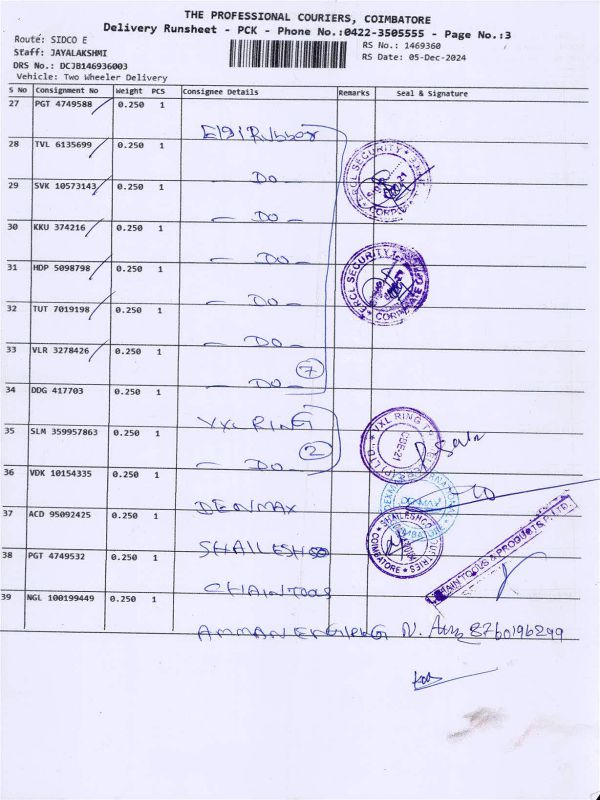 THE PROFESSIONAL COURIERS, COIMBATORE
Delivery Runsheet - PCK - Phone No.:0422-3505555 - Page No.:3
Route: SIDCO E
RS No.: 1469360
Staff: JAYALAKSHMI
RS Date: 05-Dec-2024
DRS No.: DCJB146936003
Vehicle: Two Wheeler Delivery
S No Consignment No Weight PCS Consignee Details Remarks Seal & Signature
27 PGT 4749588 0.250 1
Elgi Rubber
28 TVL 6135699 0.250 1
— Do —
29 SVK 10573143 0.250 1
— Do —
30 KKU 374216 0.250 1
— Do —
31 HDP 5098798 0.250 1
— Do —
32 TUT 7019198 0.250 1
— Do —
33 VLR 3278426 0.250 1
— Do — 7
34 DDG 417703 0.250 1
VXL RING
35 SLM 359957863 0.250 1
— Do — 2
36 VDK 10154335 0.250 1
DENMAX
37 ACD 95092425 0.250 1
SHAILESH
38 PGT 4749532 0.250 1
CHAIN TOOLS
39 NGL 100199449 0.250 1
AMMAN ENGG N. 8760196299
ERCL SECURITY
ERCL SECURITY
VXL RING
COIMBATORE
CHAIN TOOLS & PRODUCTS P. LTD.